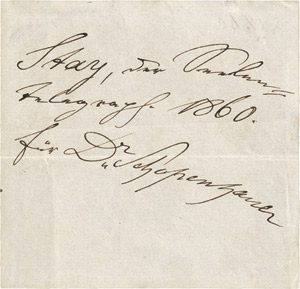 Stay, der Seelen=
telegraph. 1860.
für Dr Schopenhauer